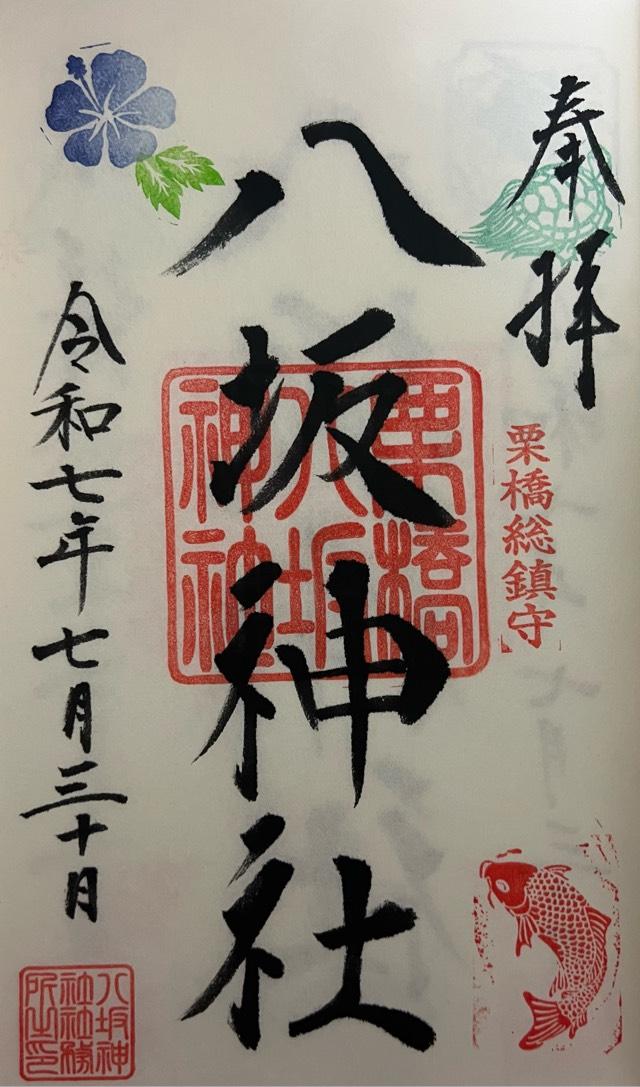 奉拝
栗橋総鎮守
八坂神社
栗橋
八坂
神社
令和七年七月三十日
八坂神
社社務
所之印